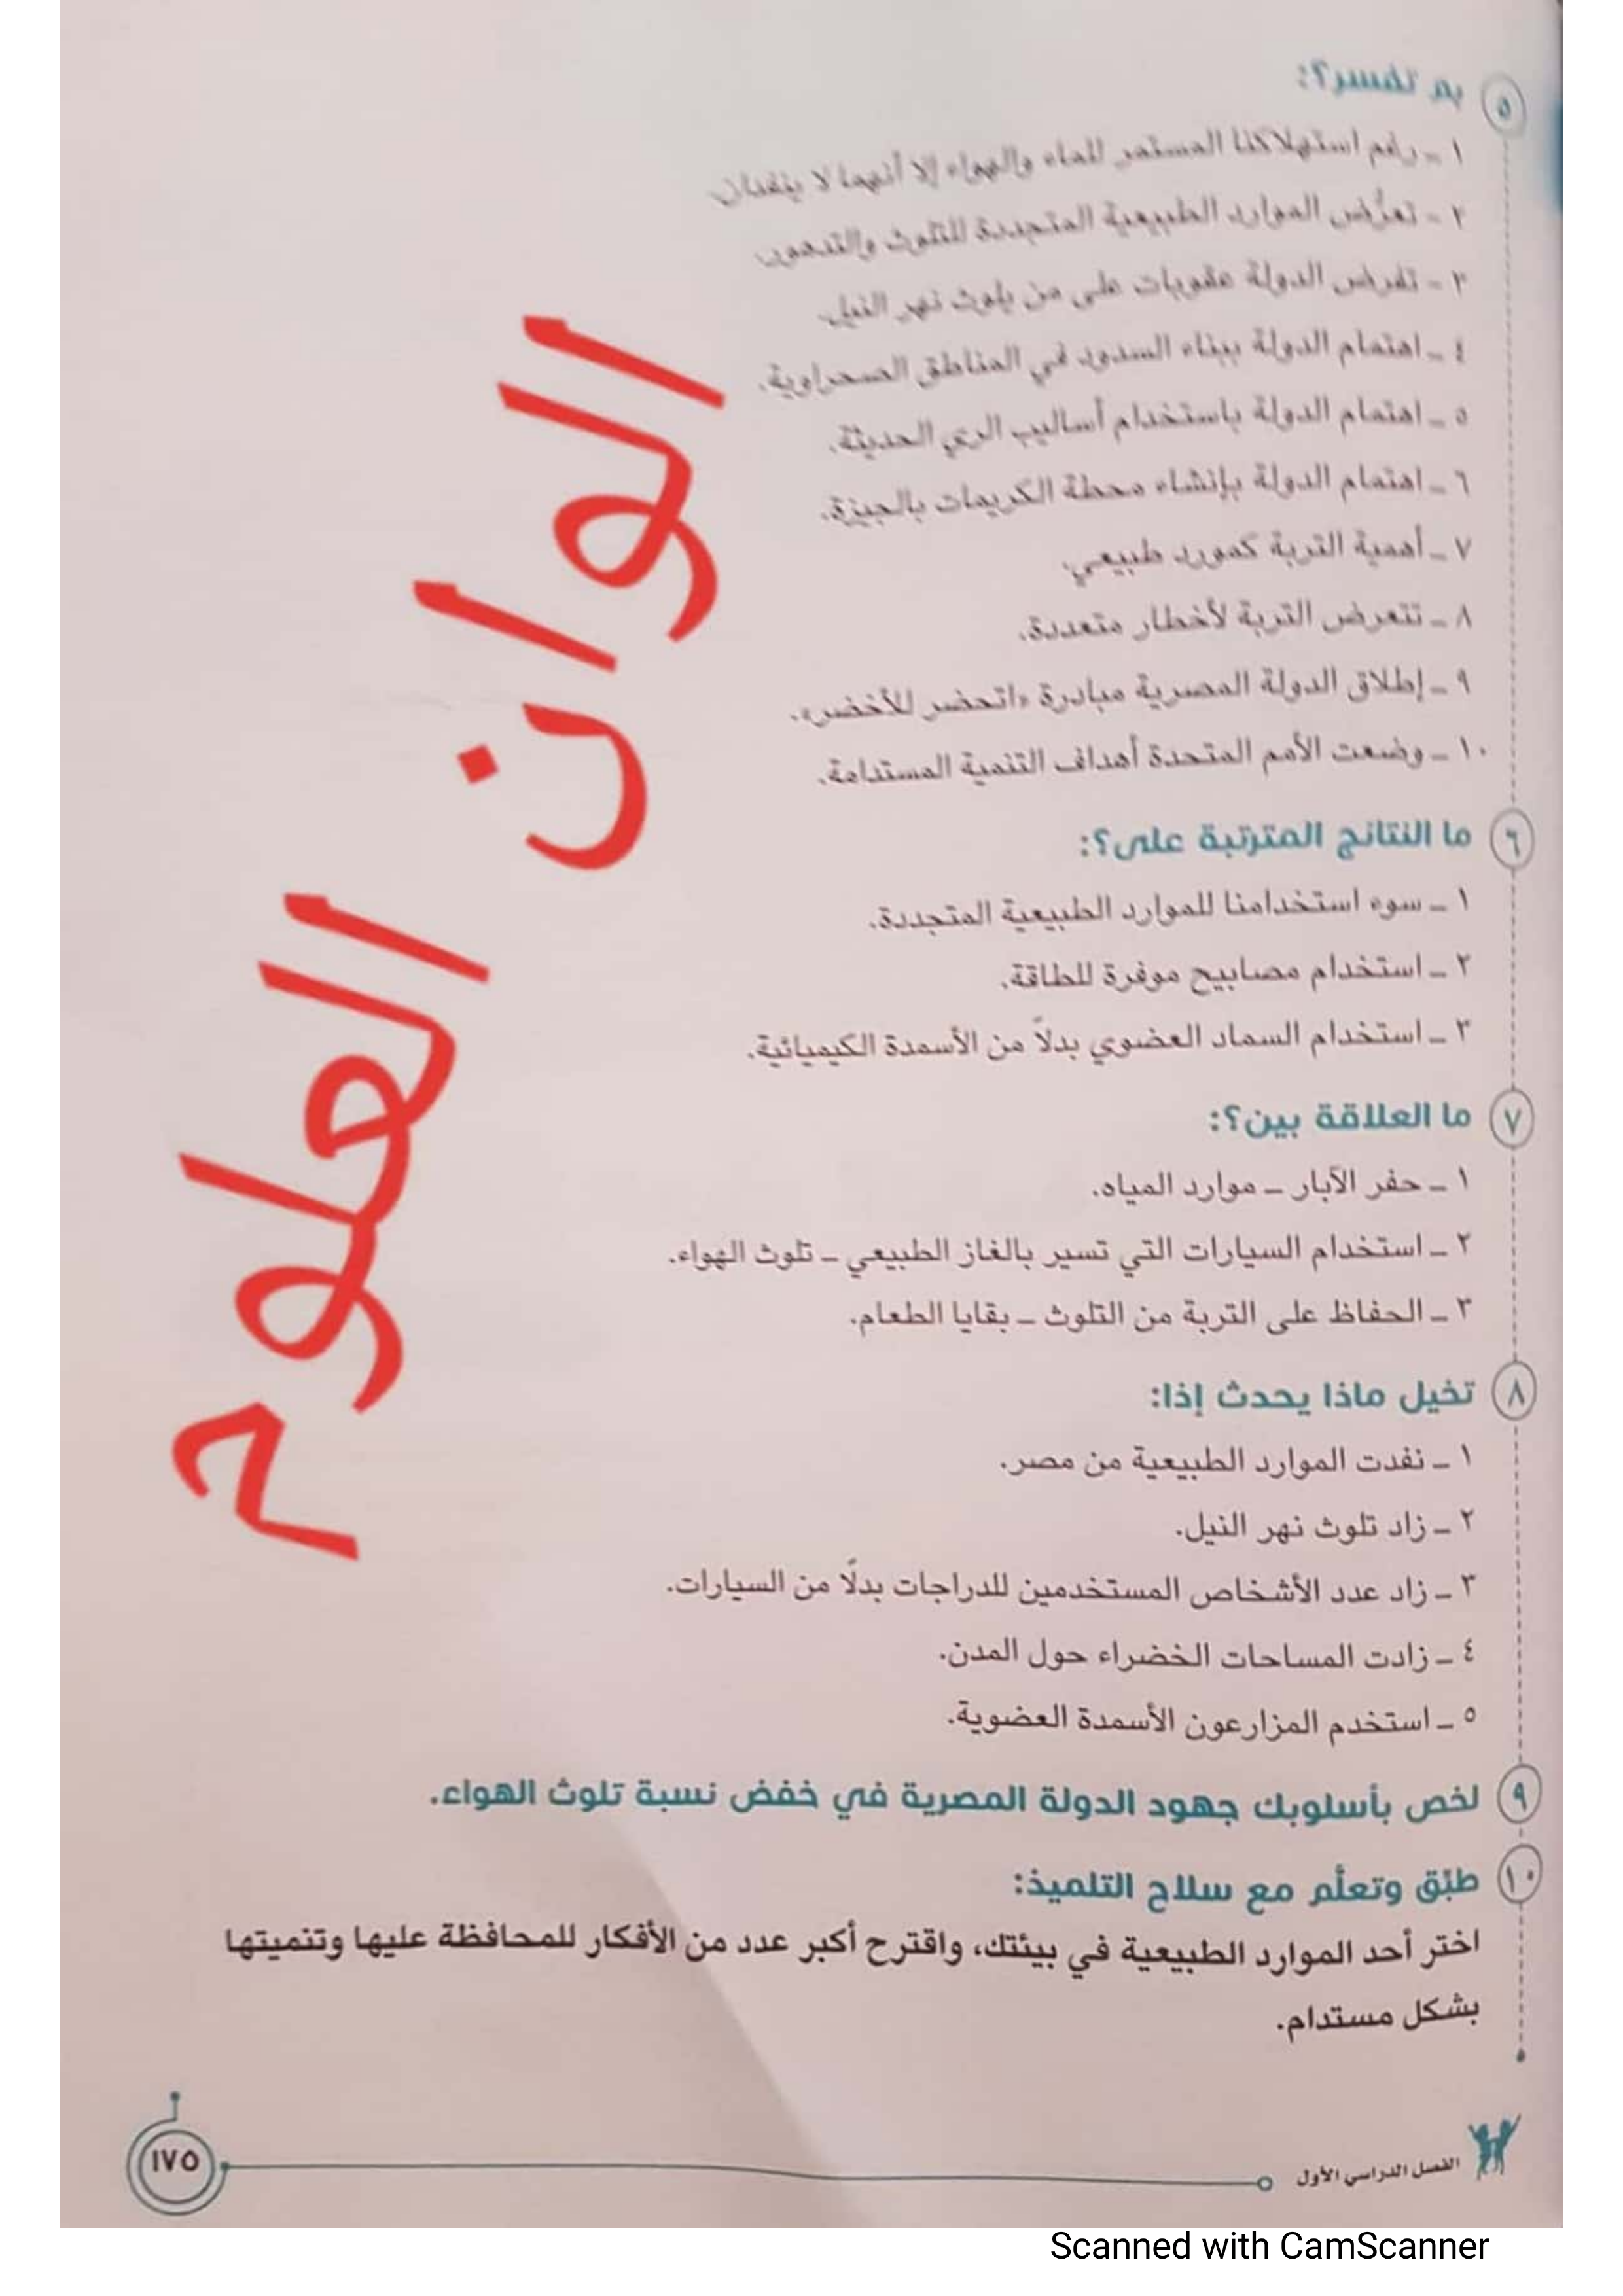 ٥ بم تفسر؟:
١ ـ رغم استهلاكنا المستمر للماء والهواء إلا أنهما لا ينفدان.
٢ ـ تعرُّض الموارد الطبيعية المتجددة للتلوث والتدهور.
٣ ـ تفرض الدولة عقوبات على من يلوث نهر النيل.
٤ ـ اهتمام الدولة ببناء السدود في المناطق الصحراوية.
٥ ـ اهتمام الدولة باستخدام أساليب الري الحديثة.
٦ ـ اهتمام الدولة بإنشاء محطة الكريمات بالجيزة.
٧ ـ أهمية التربة كمورد طبيعي.
٨ ـ تتعرض التربة لأخطار متعددة.
٩ ـ إطلاق الدولة المصرية مبادرة «اتحضر للأخضر».
١٠ ـ وضعت الأمم المتحدة أهداف التنمية المستدامة.
٦ ما النتائج المترتبة على؟:
١ ـ سوء استخدامنا للموارد الطبيعية المتجددة.
٢ ـ استخدام مصابيح موفرة للطاقة.
٣ ـ استخدام السماد العضوي بدلاً من الأسمدة الكيميائية.
٧ ما العلاقة بين؟:
١ ـ حفر الآبار ـ موارد المياه.
٢ ـ استخدام السيارات التي تسير بالغاز الطبيعي ـ تلوث الهواء.
٣ ـ الحفاظ على التربة من التلوث ـ بقايا الطعام.
٨ تخيل ماذا يحدث إذا:
١ ـ نفدت الموارد الطبيعية من مصر.
٢ ـ زاد تلوث نهر النيل.
٣ ـ زاد عدد الأشخاص المستخدمين للدراجات بدلًا من السيارات.
٤ ـ زادت المساحات الخضراء حول المدن.
٥ ـ استخدم المزارعون الأسمدة العضوية.
٩ لخص بأسلوبك جهود الدولة المصرية في خفض نسبة تلوث الهواء.
١٠ طبِّق وتعلَّم مع سلاح التلميذ:
اختر أحد الموارد الطبيعية في بيئتك، واقترح أكبر عدد من الأفكار للمحافظة عليها وتنميتها
بشكل مستدام.
الفصل الدراسي الأول
١٧٥
الوان العلوم
Scanned with CamScanner